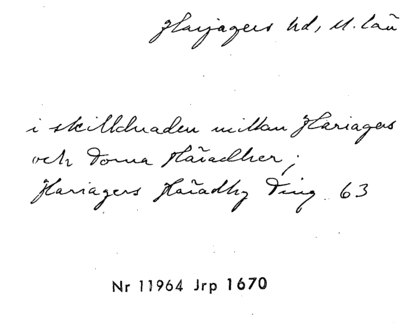 Harjagers hd, M. län
i skilldnaden millan Hariagers
och Torna Häradher;
Hariagers Häradhz Ting 63
Nr 11964 Jrp 1670